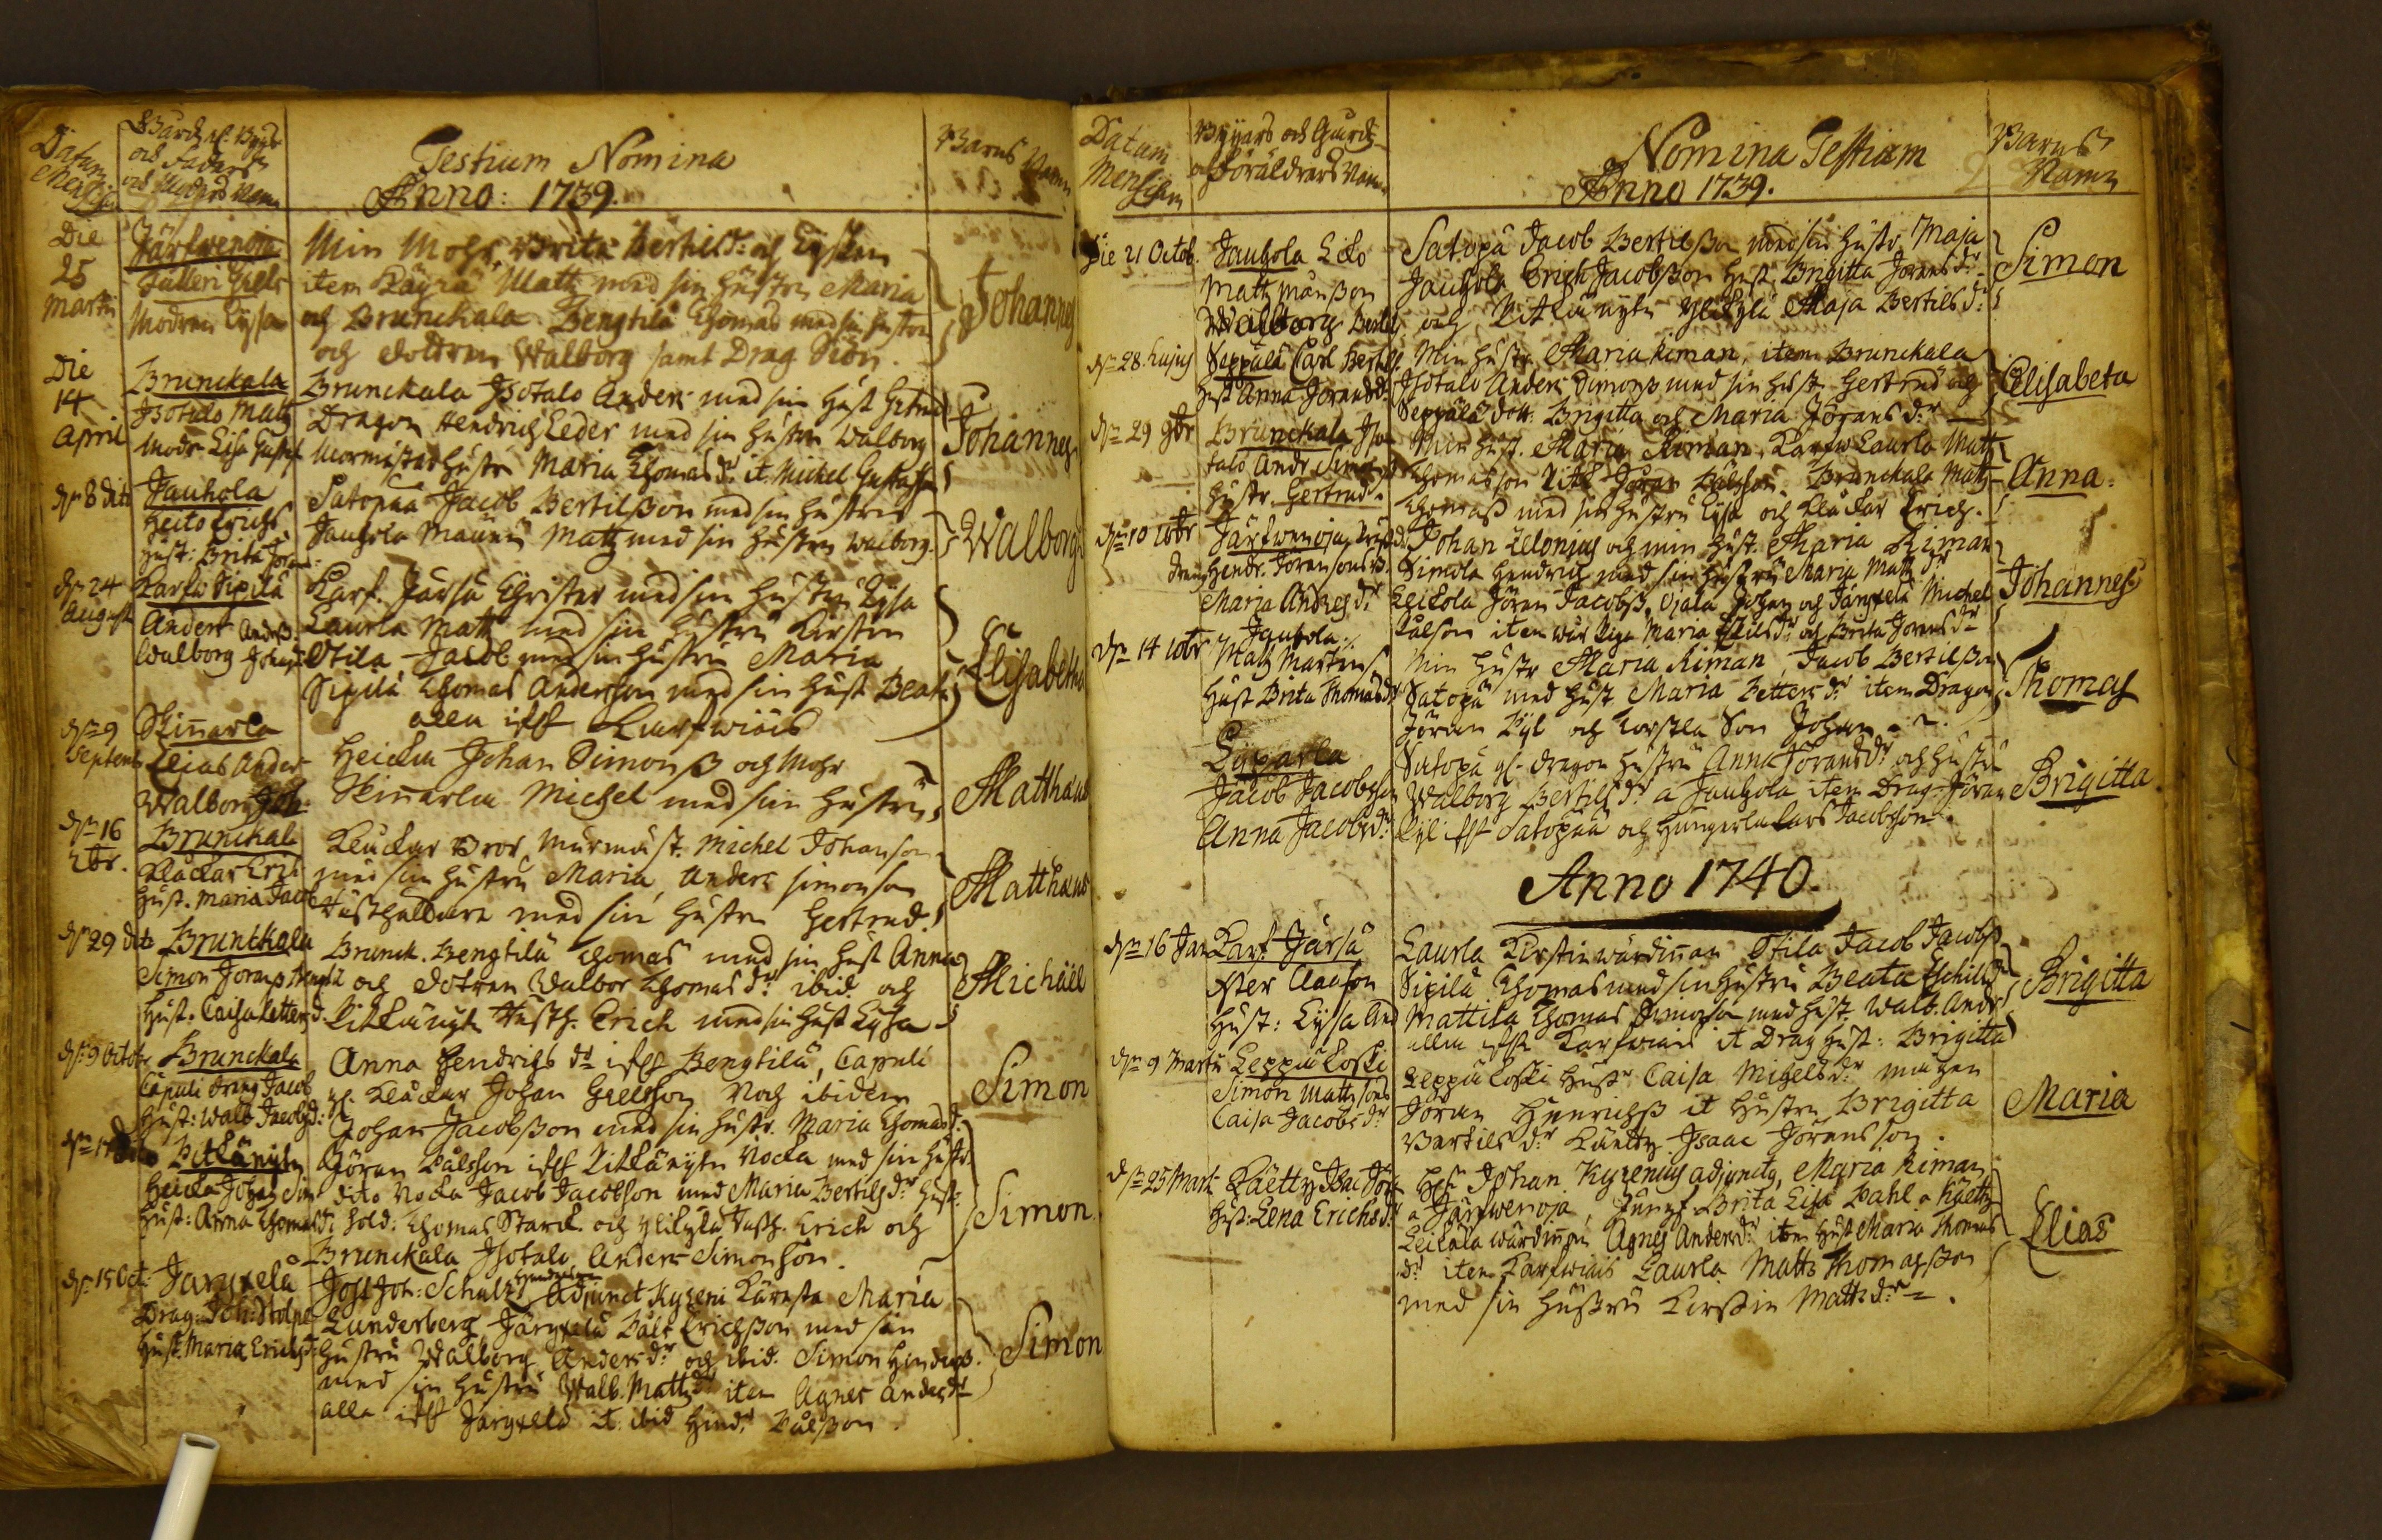 Datum
Mensium
Gårds och Byes
och Faders
och Modrens Namn
Testium Nomina
Anno: 1739.
Barns Namn
Die
25
Martii
Järfwenoja
Modren Lysa
Min Mohr, Brita Bertilsdr och Systren
item Matts med sin hustru Maria
och Brunckala Bengtilä Thomas med sin hustru
och dottren Walborg samt Drag
Johannes
Die
14
April
Brunckala
Isotalo Matts
Modr Lisa
Brunckala Isotalo Anders med sin hust
Dragon Hendrich Leder med sin hustru Walborg
hustru Maria Thomasdr it. Michel
Johannes
dn 8 dito
Jauhola
Heito Erichs
hust: Brita
Satopää Jacob Bertilsson med sin hustru
Jauhola Matts med sin hustru Walborg.
Walborg
dn 24
August
Karf: Sipilä
Anders
Walborg
Karf. Järsä Christer med sin hustru Lysa
Laurla Matts med sin hustru Kirstin
Otila Jacob med sin hustru Maria
Sipilä Thomas Andersson med sin hust Beata
alla ifrån Karfwiais
Elisabetha
dn 9
Septemb
Skinnarla
Elias Anders
Walborg Joh:
Heickla Johan Simonss och Mohr
Skinnarla Michel med sin hustru
Matthæus
dn 16
Brunckal
Klåckar Erik
Hust. Maria Jacobs
Klåckar Bror, Murmäst. Michel Johanson
med sin hustru Maria, Anders Simonson
med sin hustru Gertrud.
Matthæus
dn 29 dito
Brunckala
Simon
Hust. Caisa
Brunck. Bengtilä Thomas med sin hust Anna
och dotren Walbor Thomasdr ibid. och
Pitkänyte Erich med sin hust Lysa
Michäel
dn 9 Octobr
Brunckala
Capuli dräng Jacob
Hust: Walb Jacobsd:
Anna Hendrichsdr ifrån Bengtilä, Capuli
Klåckar Johan Noch ibidem
Johan Jacobsson med sin hustr. Maria Thomasd:
Simon
Pitkänyte
Heicka Johan Sim
Hust: Anna Thomasd:
Göran Pålsson ifrån Pitkänyte Nocka med sin hustr
dito Nocka Jacob Jacobson med Maria Bertilsdr hust:
Sold: Thomas Starck och Ylikylä Erich och
Brunckala Isotalo Anders Simonson.
Simon
dn 15 Oct.
Järyxela
Drag: Joh: Stolpe
Hust Maria Erichsd:
Joh: Schultz Adjunct Kyreni Käresta Maria
Lunderberg, Järyxelä Påls Erichsson med sin
hustru Walborg Andersdr och ibid. Simon
med sin hustru Walb. Mattsdr item Agnes Andersdr
alla ifrån Järyxelä it. ibid Hindr. Pålsson.
Simon
Datum
Mensium
Byars och Gårds
och Föräldrars Namn
Nomina Testium
Anno 1739.
Barns
Namn
Die 21 Octob.
Jauhola Eilo
Matts Månsson
Walborg Bertils
Satopä Jacob Bertilsson med sin hustr. Maja
Jauhola Erich Jacobsson hust. Brigitta Jöransdr
och Pitkänyte Ylikylä Maja Bertilsdr
Simon
dn 28. hujus
Seppälä Carl Bertils
hust Anna Jöransdr
Min hustr Maria Riman, item Brunckala
Isotalo Anders Simonss med sin hust Gertrud och
Seppälä dott. Brigitta och Maria Jöransdr
Elisabeta
dn 29 9br
Brunckala Iso
talo Andr Simonss
hustr. Gertrud
Min hust. Maria Riman, Karfw Laurla Matts
Thomasson Jöran Pålsson. Brunckala Matts
Thomass med sin hustru Lysa och Klåckar Erich.
Anna.
dn 10 10br
Järfwenoja
dräng Hendr. Jöransons
Maria Andersdr
Johan Zelonius och min hust. Maria Riman
Simola Hendrich med sin hustru Maria Mattsdr
Jöran Jacobss, Ojala Johan och Järyxelä Michel
Pålson item wår Piga Maria Eskilsdr och Brita Jöransdr
Johannes
dn 14 10br
Jauhola:
Matts Martins
Hust Brita Thomasdr
Min hustr Maria Riman, Jacob Bertilsson
Satopä med hust Maria Pettersdr item Dragon
Jöran Pyl och Son Johan.
Thomas
Lyparla
Jacob Jacobsson
Anna Jacobsdr
Satopä dragon hustru Anna Jöransdr och hustru
Walborg Bertilsdr a Jauhola item Drag. Jöran
Pyl ifrån Satopää och Hungerla Lars Jacobsson.
Brigitta
Anno 1740.
dn 16 Jan
Karf. Järsä
Clason
Hust: Lysa And
Laurla Kirstin wärdinnan Otila Jacob Jacobss
Sipilä Thomas med sin hustru Beata
Mattila Thomas Simonson med hust. Walb. Andr
alla ifrån Karfwiais it Drag hust: Brigitta
Brigitta
dn 9 Martii
Leppäkoski
Simon Mattssons
Caisa Jacobsdr
Leppäkoski hustr Caisa Michelsdr
Jöran Henrichss it hustru Brigitta
Bertilsdr Isaac Jöransson.
Maria
dn 25 Mart:
Kåetty Isac Jör
hust: Lena Erichsdr
Hr Johan Kyrenius adjunctus, Maria Riman
a Järfwenoja, Jungf. Brita Lisa Pahl a Kåetty
wärdinnan Agnes Andersdr item hust Maria Thomas
dr item Karfwiais Laurla Matts Thomasson
med sin hustru Kirstin Mattsdr
Elias